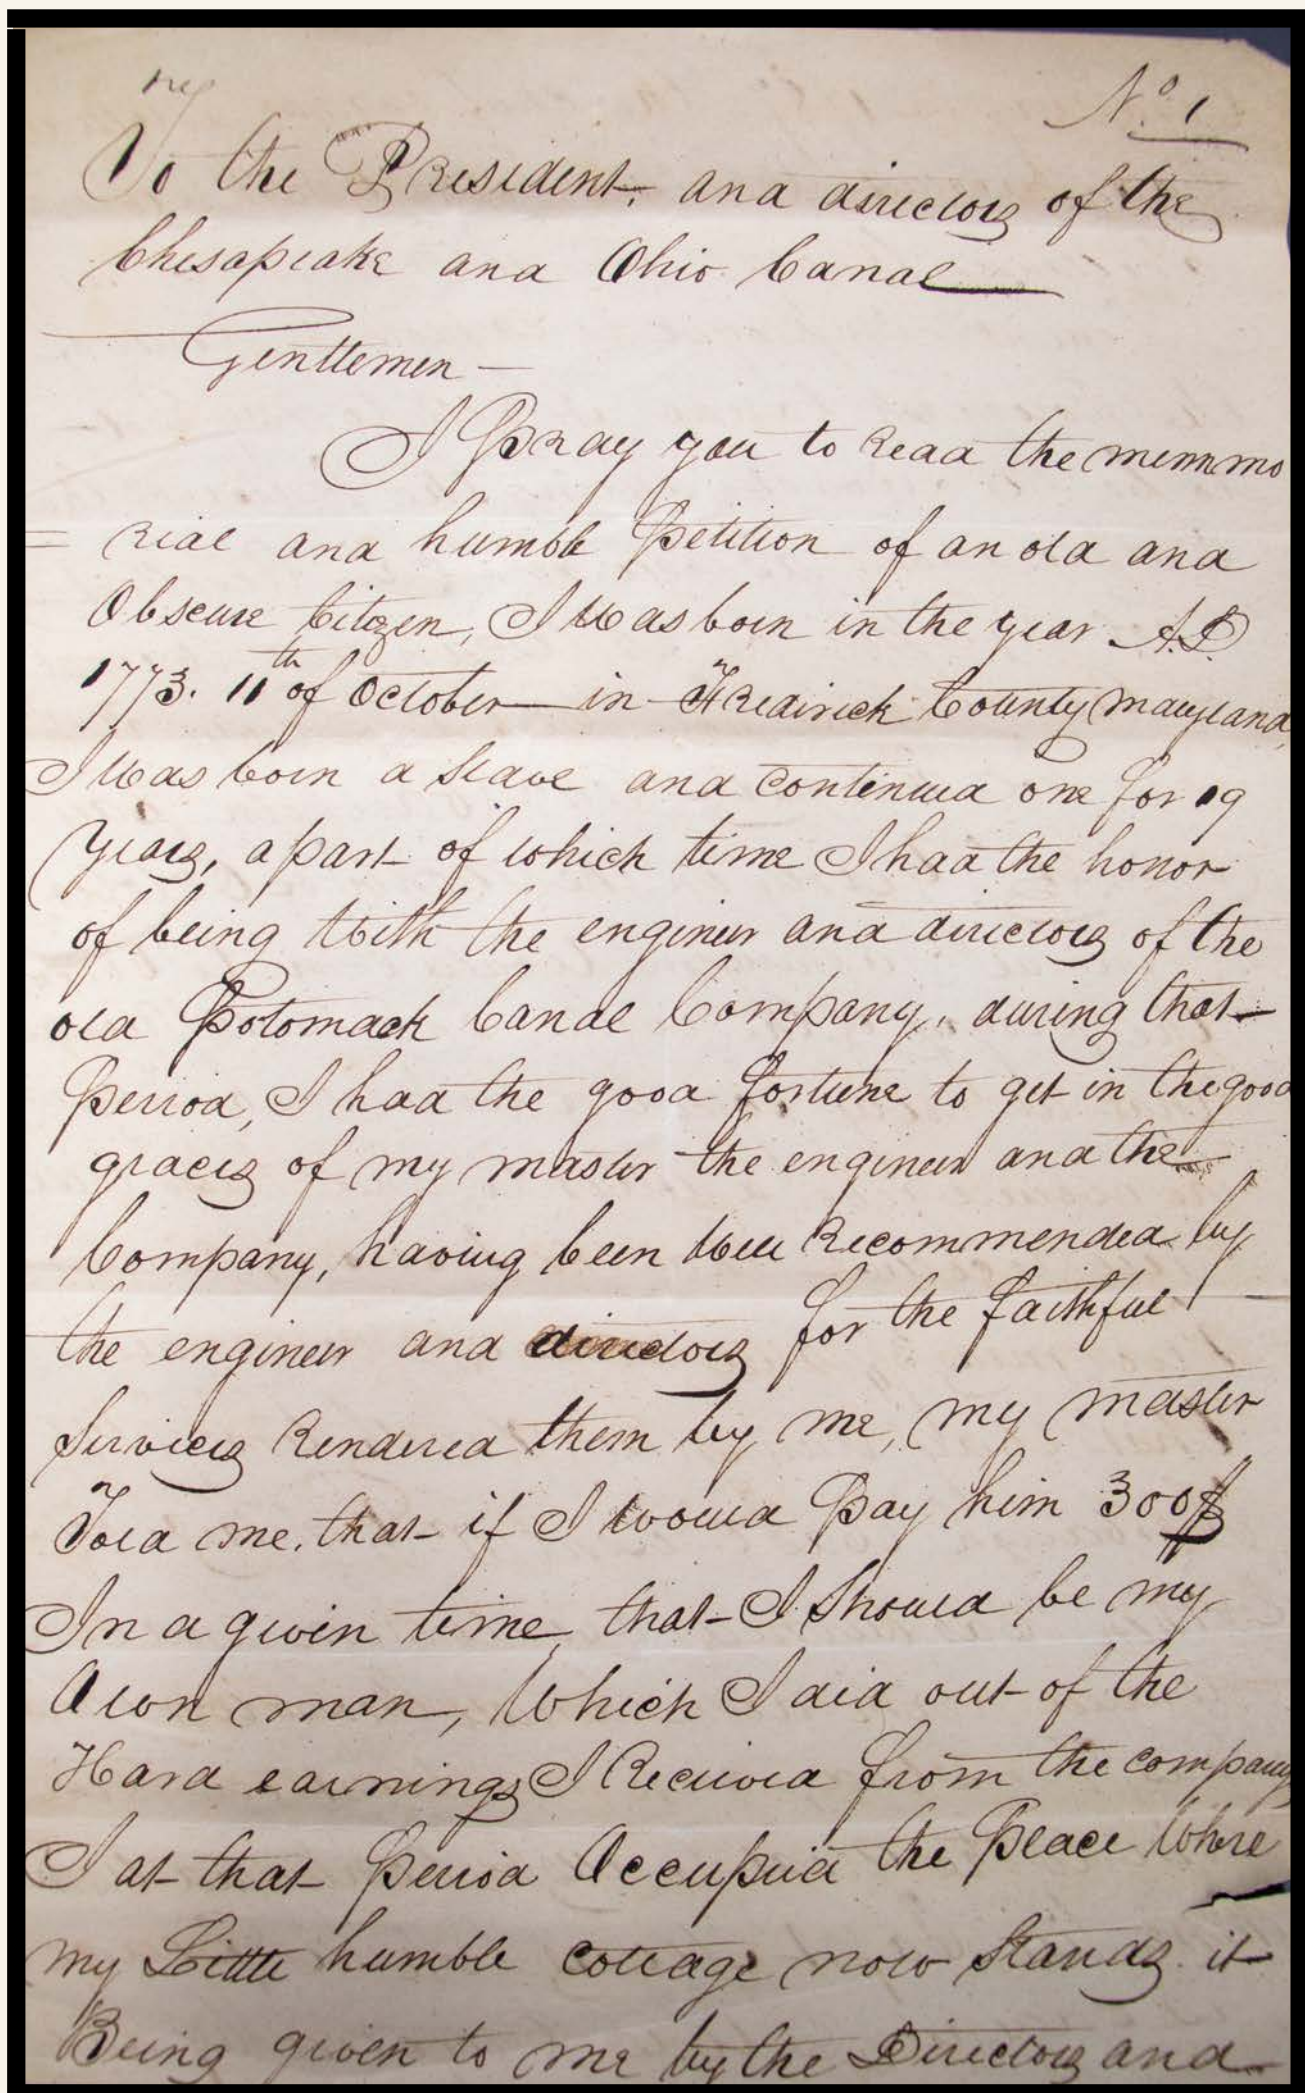 No. 1
To the President, and directors of the
Chesapeake and Ohio Canal
Genttemen —
I Pray you to Read the memmo
= rial and humble Petition of an old and
Obscure Citizen, I Was born in the year A.D.
1773. 11th of October in Fredirick County Maryland,
I Was born a Slave and Continued one for 19
years, a part of which time I had the honor
of being With the engineer and directors of the
old Potomack Canal Company, during that
Period, I had the good fortune to get in the good
graces of my master the engineer and the
Company, having been Well Recommended by
the engineer and directors for the faithful
Services Rendered them by me, my master
Told me, that if I would Pay him 300$
In a given time, that I Should be my
Own man, Which I did out of the
Hard earnings I Received from the company
I at that Period Occupied the Place Where
my Little humble Cottage now Stands it
Being given to me by the Directors and